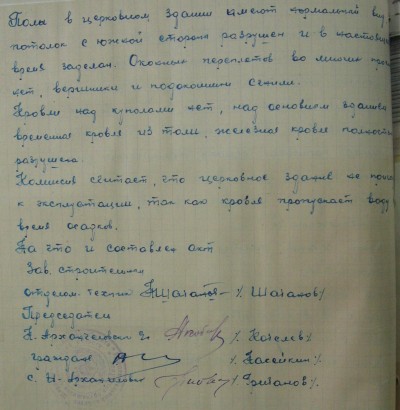 Полы в церковном здании имеют нормальный вид,
потолок с южной стороны разрушен и в настоящее
время заделан. Оконных переплетов во многих
нет, вершинки и подоконники сгнили.
Кровли над куполами нет, над основным зданием
временная кровля из толи, железная кровля полностью
разрушена.
Комиссия считает, что церковное здание не
к эксплуатации, так как кровля пропускает воду
время осадков.
На что и составлен акт
Зав. строительным
отделом техник /Шатанов/
Председатель
Н. Архангельск /Котелев/
граждане /Касейкин/
с. Н-Архангельск